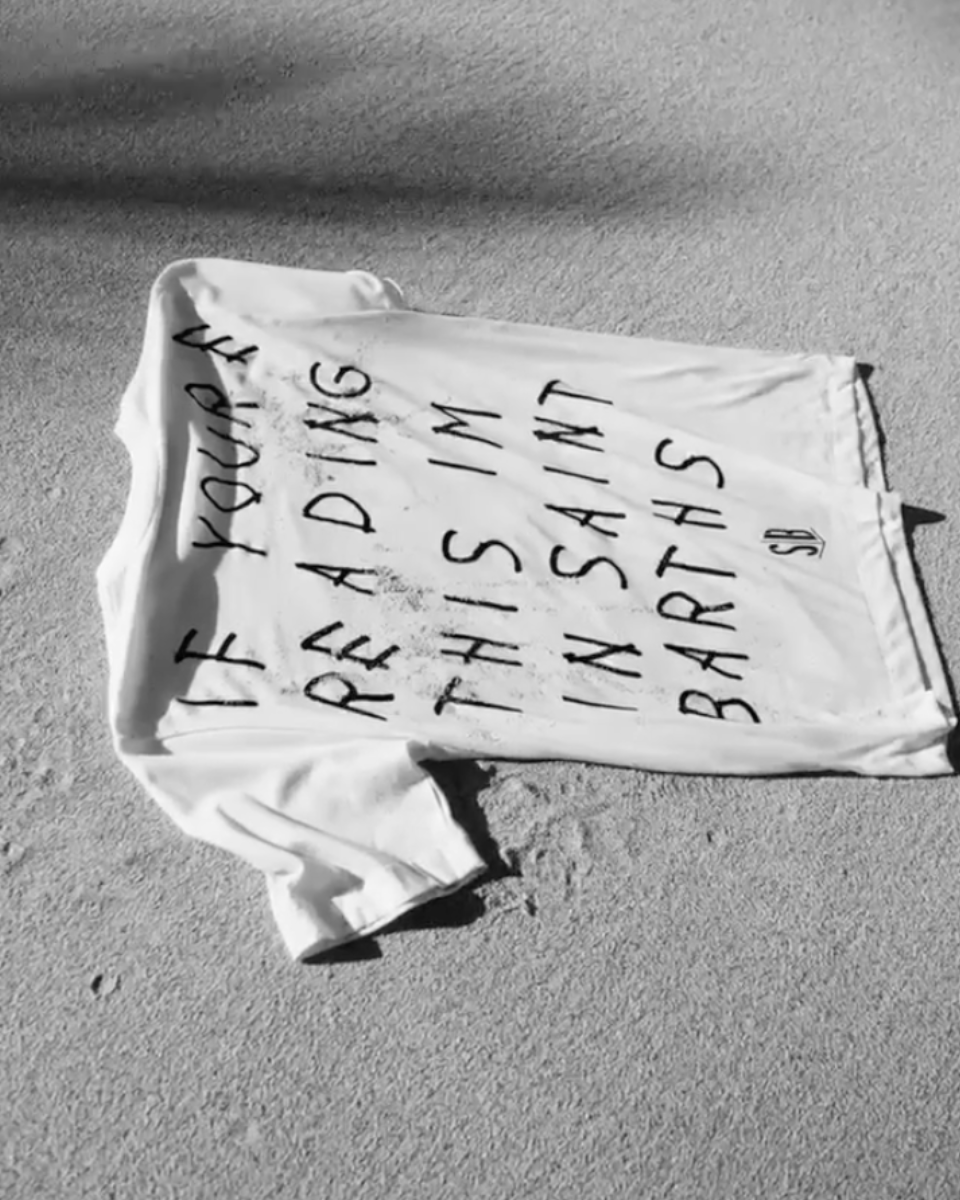 IF YOUR A
READING
THIS IM
IN SAINT
BARTHS
SB